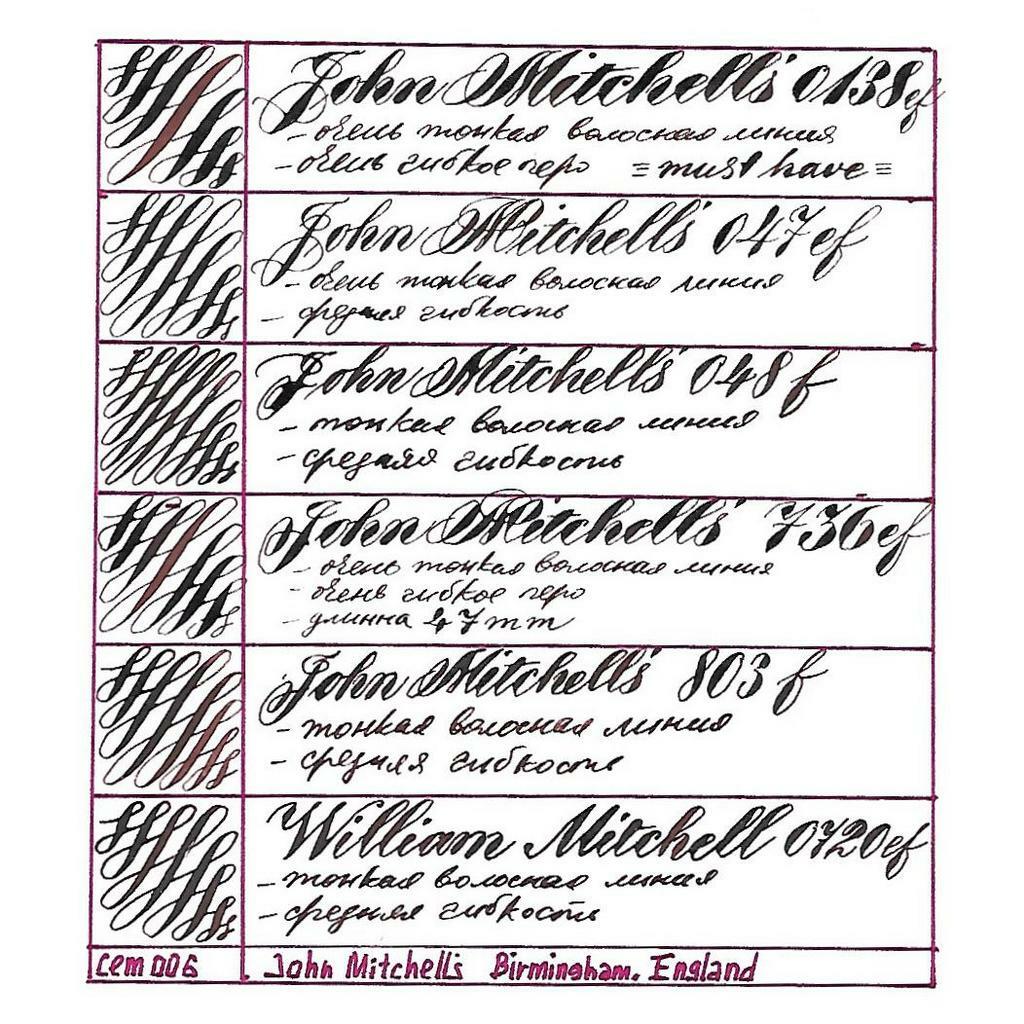 John Mitchell's 0138ef
- очень тонкая волосная линия
- очень гибкое перо ≡ must have ≡
John Mitchell's 047 ef
- очень тонкая волосная линия
- средняя гибкость
John Mitchell's 048 f
- тонкая волосная линия
- средняя гибкость
John Mitchell's 736 ef
- очень тонкая волосная линия
- очень гибкое перо
- длинна 47 mm
John Mitchell's 803 f
- тонкая волосная линия
- средняя гибкость
William Mitchell 0720ef
- тонкая волосная линия
- средняя гибкость
cem 006
John Mitchell's Birmingham. England